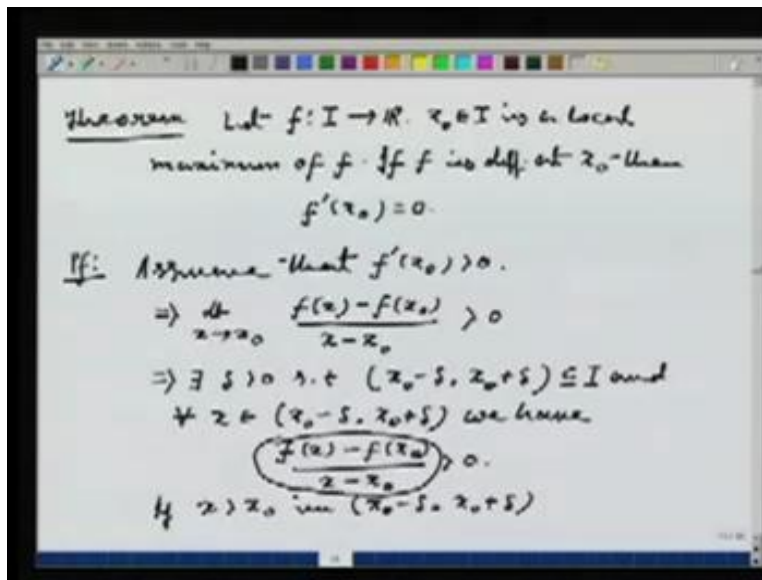 Theorem Let f: I → ℝ. x₀ ∈ I is a local
maximum of f. If f is diff. at x₀ then
f'(x₀) = 0.
Pf: Assume that f'(x₀) > 0.
⇒ lt x→x₀ (f(x) − f(x₀))/(x − x₀) > 0
⇒ ∃ δ > 0 s.t (x₀ − δ, x₀ + δ) ⊆ I and
∀ x ∈ (x₀ − δ, x₀ + δ) we have
(f(x) − f(x₀))/(x − x₀) > 0.
If x > x₀ in (x₀ − δ, x₀ + δ)